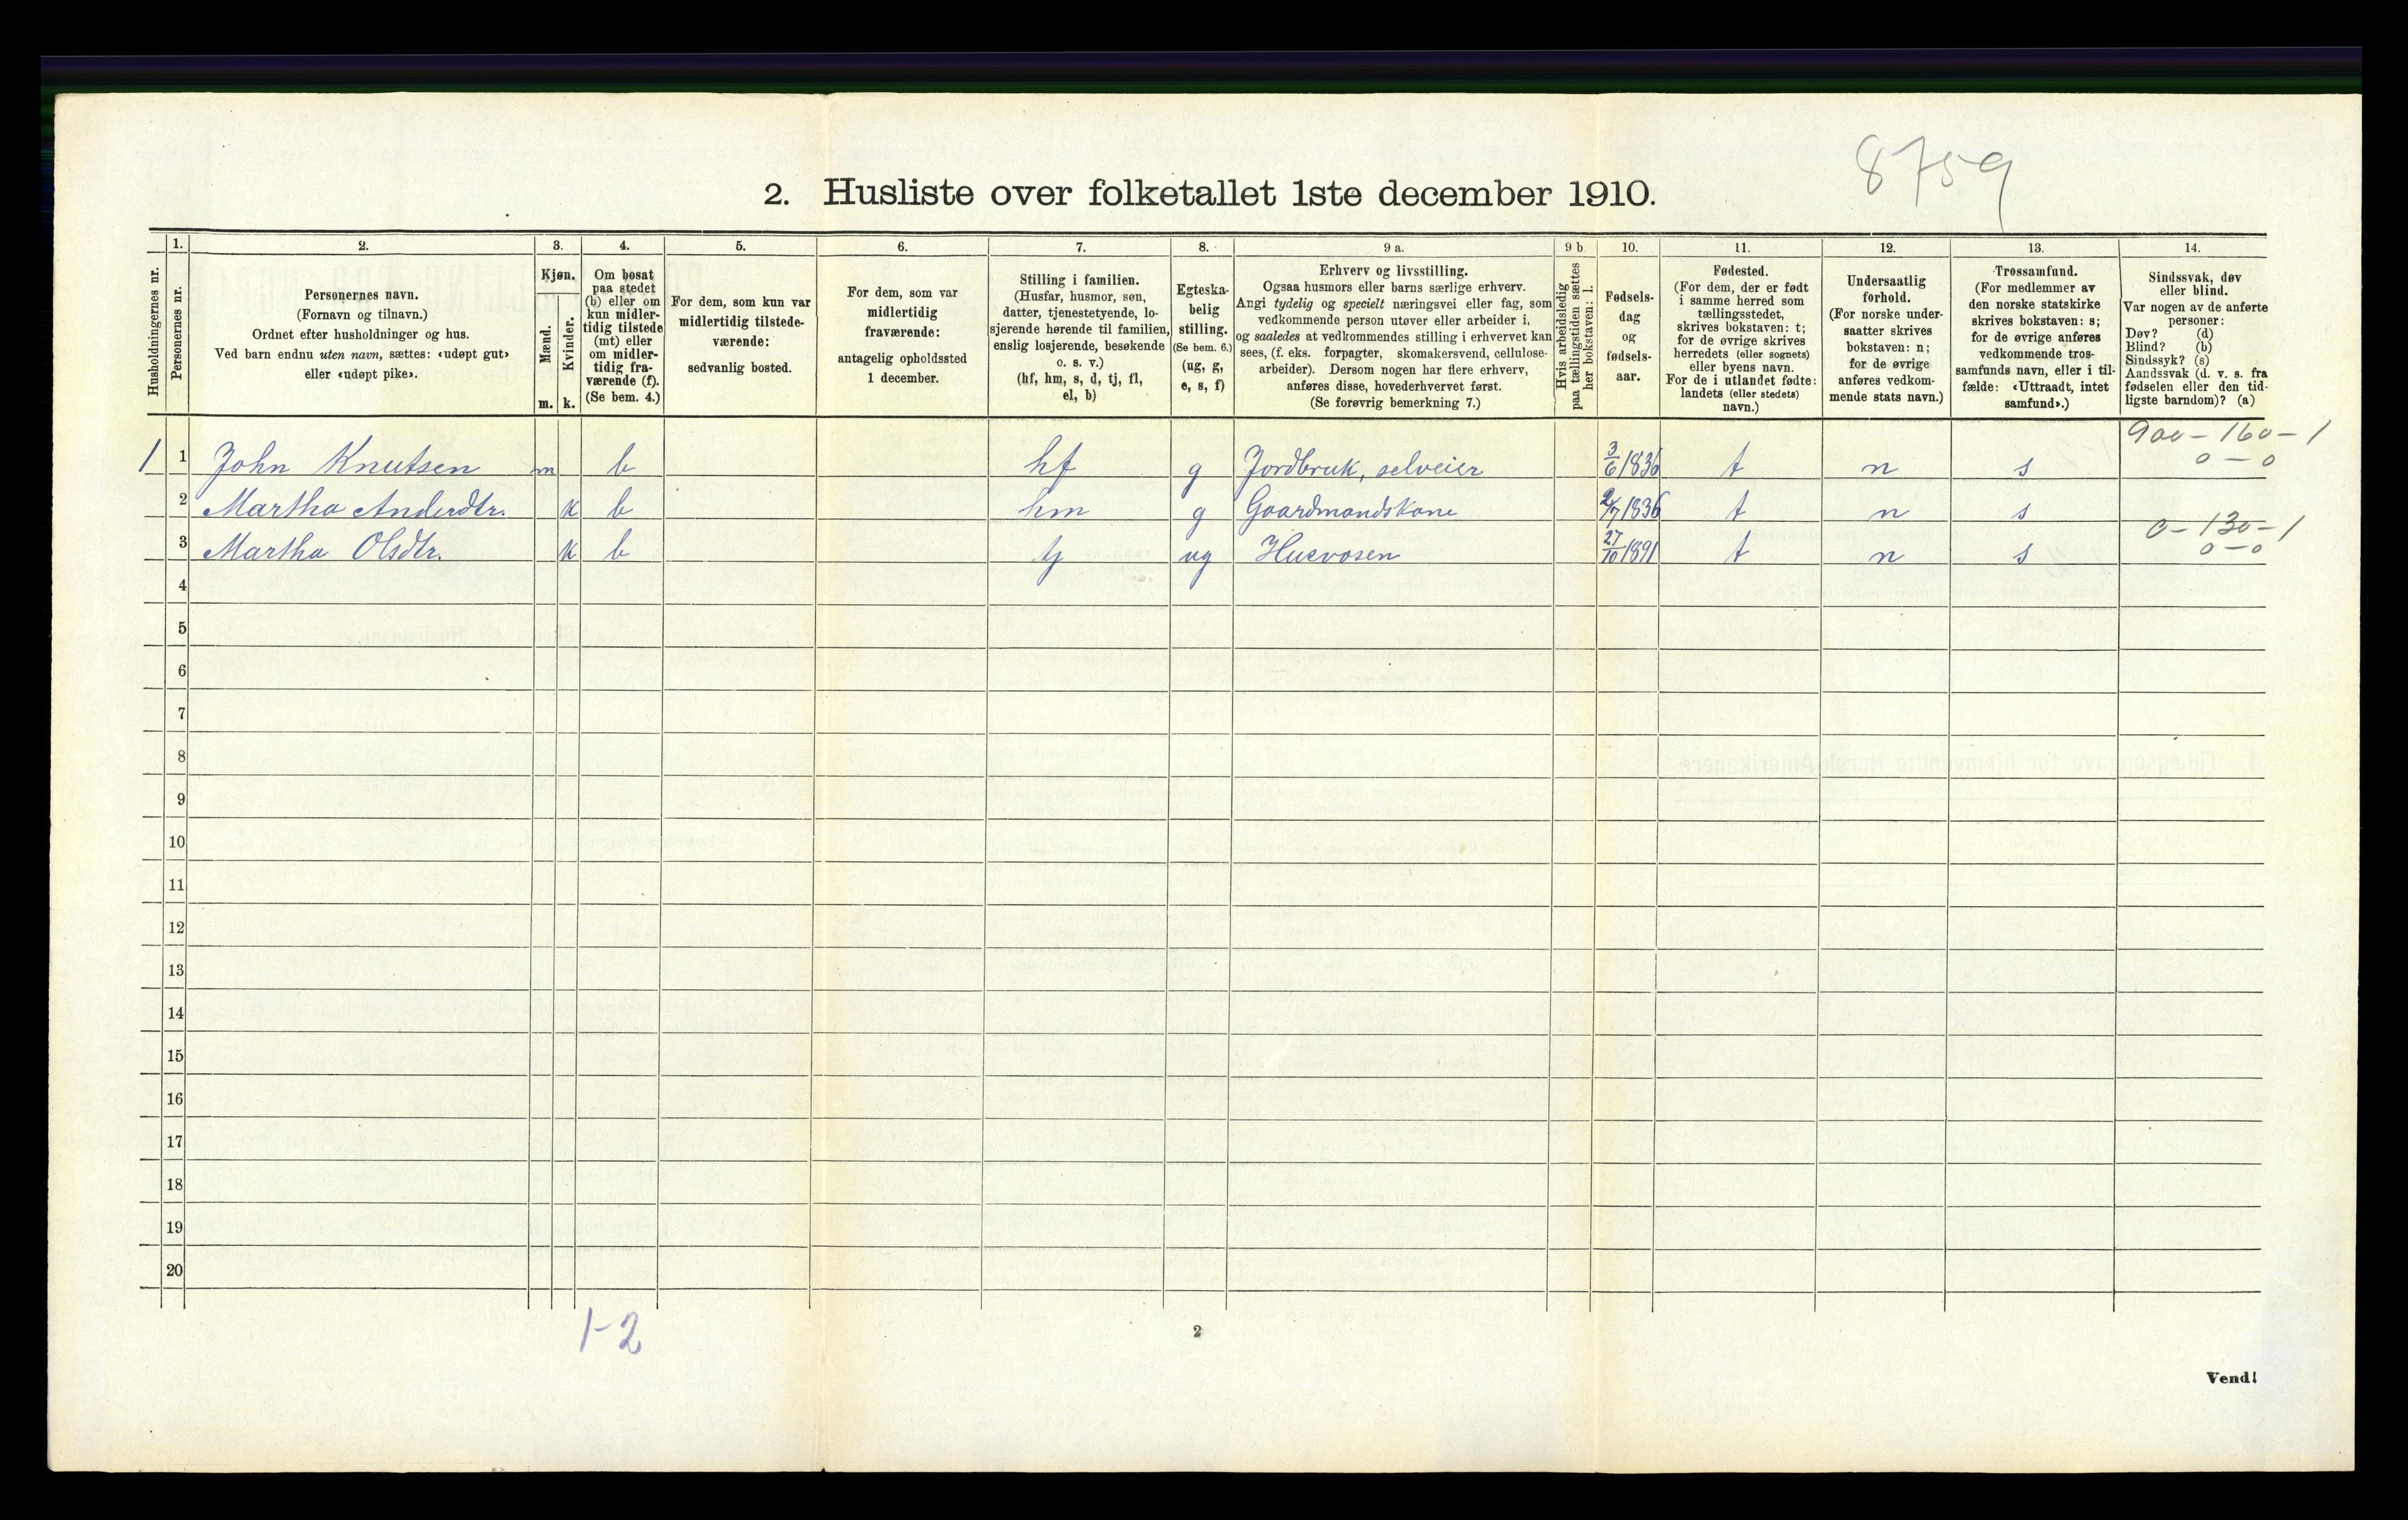 8759
2. Husliste over folketallet 1ste december 1910.
Husholdningernes nr.
1.
Personernes nr.
2.
Personernes navn.
(Fornavn og tilnavn.)
Ordnet efter husholdninger og hus.
Ved barn endnu uten navn, sættes: «udøpt gut»
eller «udøpt pike».
3.
Kjøn.
Mænd.
Kvinder.
m. k.
4.
Om bosat
paa stedet
(b) eller om
kun midler-
tidig tilstede
(mt) eller
om midler-
tidig fra-
værende (f).
(Se bem. 4.)
5.
For dem, som kun var
midlertidig tilstede-
værende:
sedvanlig bosted.
6.
For dem, som var
midlertidig
fraværende:
antagelig opholdssted
1 december.
7.
Stilling i familien.
(Husfar, husmor, søn,
datter, tjenestetyende, lo-
sjerende hørende til familien,
enslig losjerende, besøkende
o. s. v.)
(hf, hm, s, d, tj, fl,
el, b)
8.
Egteska-
belig
stilling.
(Se bem. 6.)
(ug, g,
e, s, f)
9 a.
Erhverv og livsstilling.
Ogsaa husmors eller barns særlige erhverv.
Angi tydelig og specielt næringsvei eller fag, som
vedkommende person utøver eller arbeider i,
og saaledes at vedkommendes stilling i erhvervet kan
sees, (f. eks. forpagter, skomakersvend, cellulose-
arbeider). Dersom nogen har flere erhverv,
anføres disse, hovederhvervet først.
(Se forøvrig bemerkning 7.)
9 b
Hvis arbeidsledig
paa tællingstiden sættes
her bokstaven: l.
10.
Fødsels-
dag
og
fødsels-
aar.
11.
Fødested.
(For dem, der er født
i samme herred som
tællingsstedet,
skrives bokstaven: t;
for de øvrige skrives
herredets (eller sognets)
eller byens navn.
For de i utlandet fødte:
landets (eller stedets)
navn.)
12.
Undersaatlig
forhold.
(For norske under-
saatter skrives
bokstaven: n;
for de øvrige
anføres vedkom-
mende stats navn.)
13.
Trossamfund.
(For medlemmer av
den norske statskirke
skrives bokstaven: s;
for de øvrige anføres
vedkommende tros-
samfunds navn, eller i til-
fælde: «Uttraadt, intet
samfund».)
14.
Sindssvak, døv
eller blind.
Var nogen av de anførte
personer:
Døv? (d)
Blind? (b)
Sindssyk? (s)
Aandssvak (d. v. s. fra
fødselen eller den tid-
ligste barndom)? (a)
900 - 160 - 1
0 - 0
1 1 John Knutsen m b hf g Jordbruk, selveier 3/6 1836 t n s
2 Martha Andersdtr. k b hm g Gaardmandskone 2/7 1836 t n s
0 - 130 - 1
0 - 0
3 Martha Olsdtr. k b tj ug Husvosen 27/10 1891 t n s
4
5
6
7
8
9
10
11
12
13
14
15
16
17
18
19
20
1-2
2
Vend!